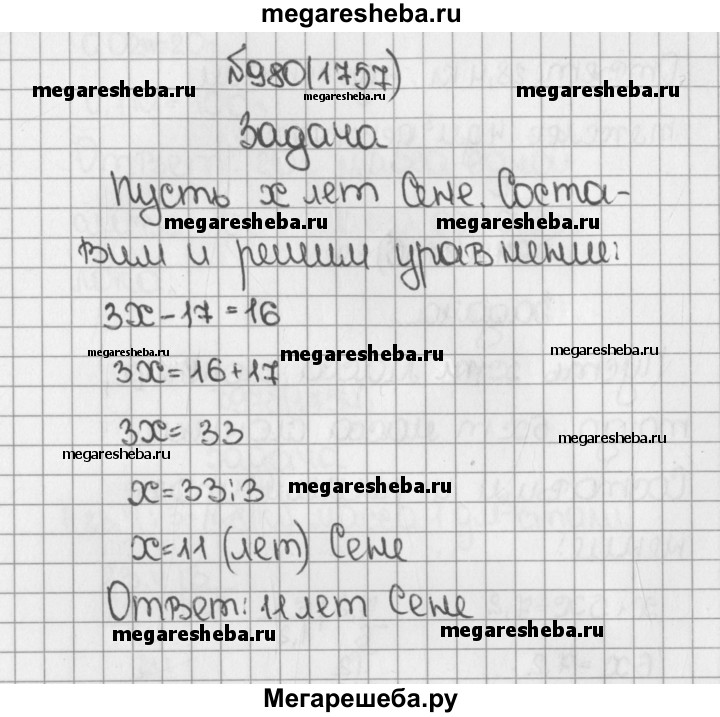 megaresheba.ru
№980(1757)
megaresheba.ru megaresheba.ru megaresheba.ru
Задача
Пусть x лет Сене. Соста-
megaresheba.ru megaresheba.ru
вим и решим уравнение:
3x-17=16
megaresheba.ru megaresheba.ru megaresheba.ru
3x=16+17
3x=33
megaresheba.ru megaresheba.ru
x=33:3 megaresheba.ru
x=11 (лет) Сене
Ответ: 11 лет Сене
megaresheba.ru megaresheba.ru
Мегарешеба.ру